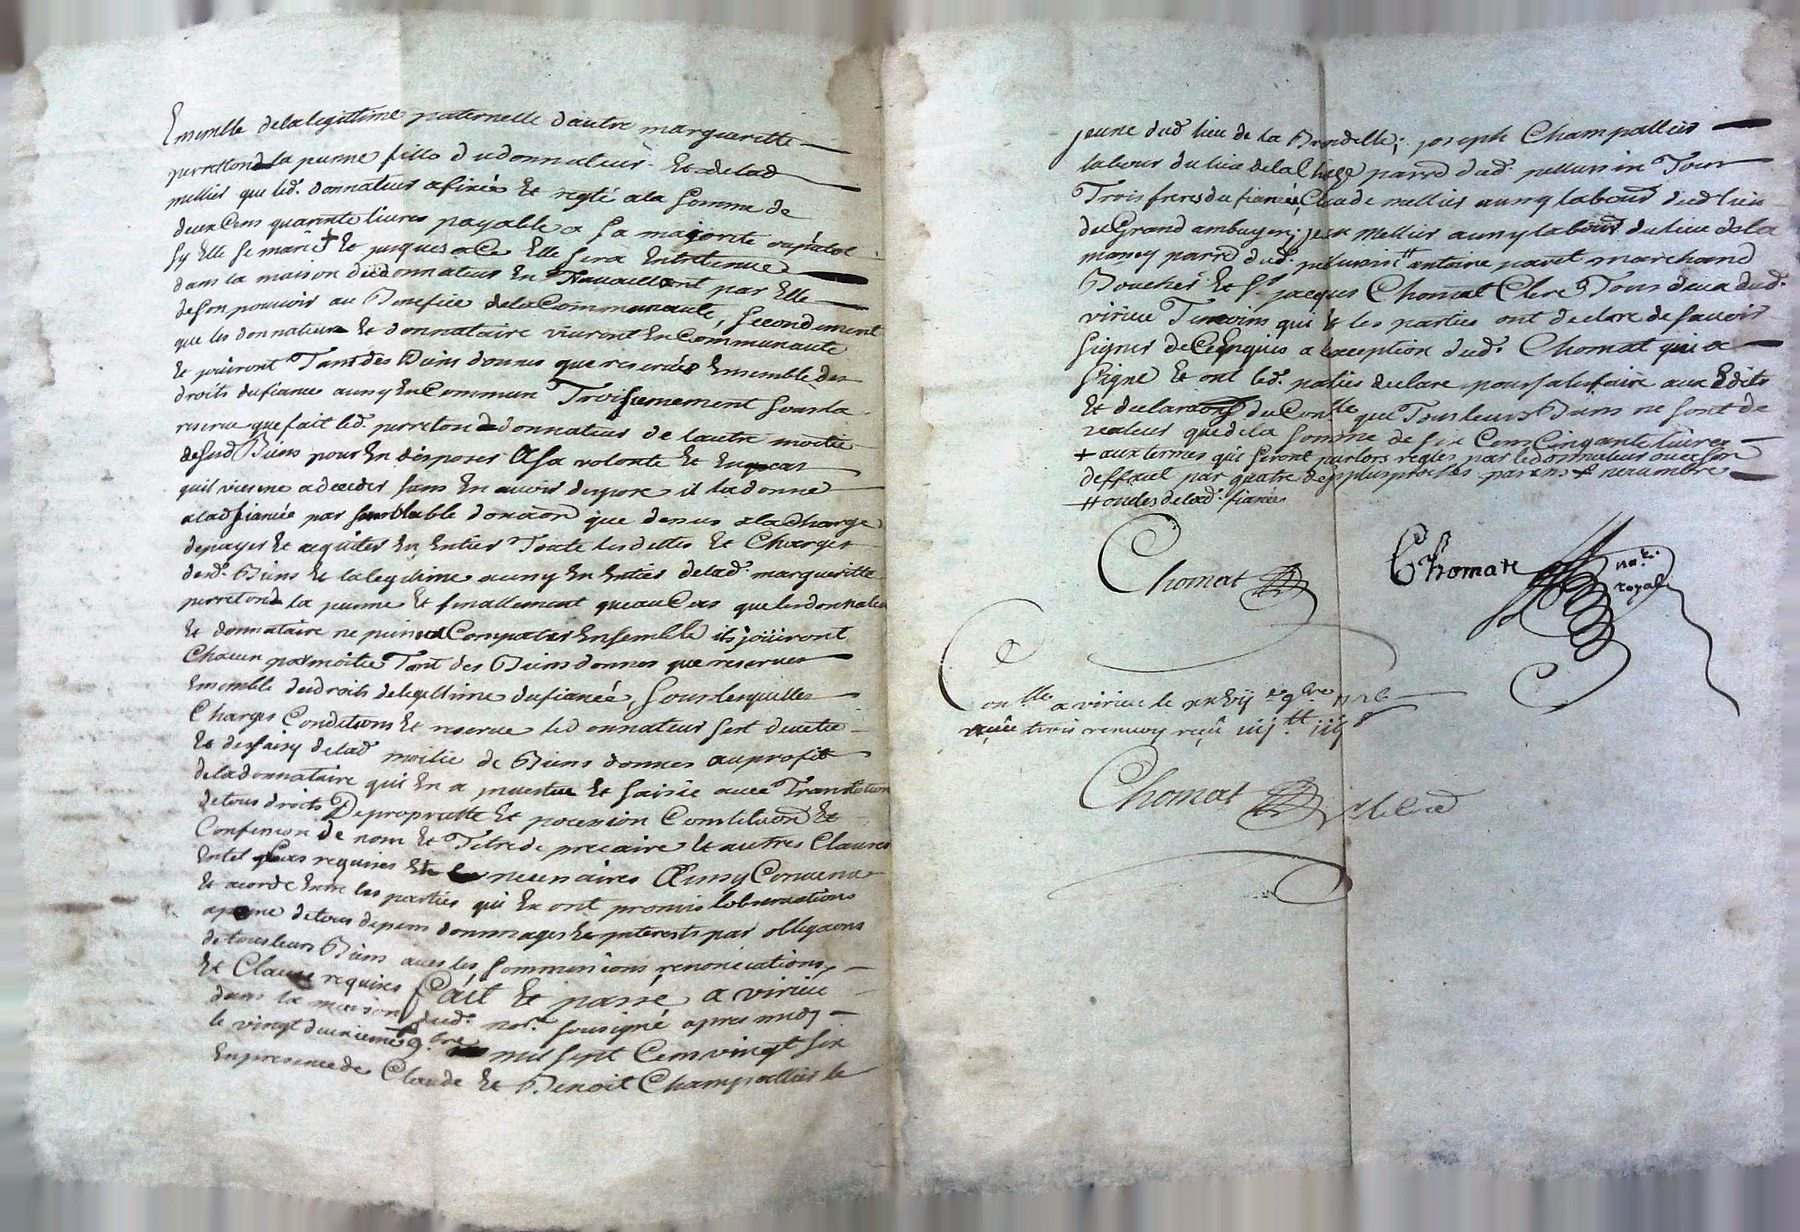 Ensemble dela legittime paternelle dautre margueritte
perretond la jeune fille dudonnateur Et delad
mellier que led. donnateur afixée Et reglé ala somme de
deux Cens quarante livres payable a sa majorité
sy Elle se marie + Et jusques a Ce Elle sera Entretenue
dans la maison dudonnateur En Travaillant par Elle
deson pouvoir au Benefice dela Communauté, secondement
que les donnateur Et donnataire vivront En Communauté
Et joüiront Tant des Biens donnes que reservés Ensemble des
droits dufiancé aussy En Commun Troisiemement sous la
reserve que fait led. perreton donnateur de lautre moitié
desesd Biens pour En disposer A sa volonté Et Encas
quil viesne adeceder sans En avoir disposé il la donne
alad fiancée par semblable donnaon que dessus ala Charge
depayer Et aquiter En Entier Toute les dettes Et Charges
desd. Biens Et la legitime aussy En Entier delad. margueritte
perretond la jeune Et finallement queau Cas que les donnateur
Et donnataire ne puissent Compater Ensemble ils joüiront
Chacun par moitié Tant des Biens donnes que reserves
Ensemble des droits delegittime dufiancé, sous lesquelles
Charges Conditions Et reserve led donnateur sest devetu
Et dessaisy delad moitié de Biens donnes auprofit
dela donnataire qui En a investue Et saisie avec Translation
de tous droits De propriette Et possession Constitution Et
Confession de nom Et Titre de precaire Et autres Clauses
En tel Cas requises Et necessaires Ainsy Convenu
Et acordé Entre les parties qui En ont promis lobservations
apeine de tous depens dommages Et interests par obligaons
de tous leurs Biens avec les sommissions renonciations,
Et Clause requises fait Et passé a virieu
dans la maison dud. nore. sousigné apres midy
le vingt deuxieme 9.bre mil sept Cens vingt six
En presence de Claude Et Benoit Champallier le
jeune dud. lieu de la Brondelle; joseph Champallier
labour du lieu dela Chaze parred dud. pellussin Tous
Trois freres du fiancé, Claude mellier aussy labour dud lieu
du Grand ambuyen; jean mellier aussy labour. du lieu dela
parred dud. pelussin # antoine marchand
Boucher Et sr. jacques Chomat Clerc Tous deux dud.
virieu Temoins qui & les parties ont declaré de scavoir
signer de Ce Enquis a lexception dud. Chomat qui a
signé Et ont led. paties declaré pour satisfaire aux Edits
Et declaraons du Conlle que Tous leurs Biens ne sont de
valeur que dela somme de six Cens Cinquante livres
+ aux termes qui seront pour lors regles par le donnateur ou a son
deffaut par quatre des plus proches parens
# oncles delad. fiancée
Chomat
Chomat nore. royal
Conlle a virieu le xxvij e 9bre 1726
trois renvoy reçu iiij tt iiij s
Chomat